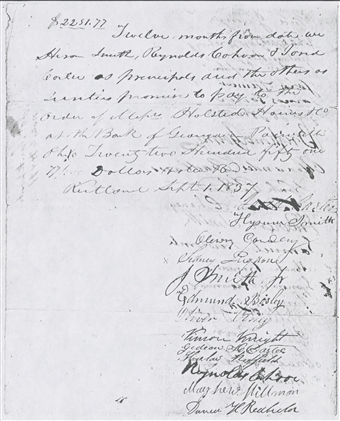 $2251.77
Twelve months from date we
Hiram Smith, Reynolds Cahoon & Jared
Carter as principals and the others as
sureties promise to pay to the
order of Messrs Holsted Haines & Co
at the Bank of Geauga Painesville
Ohio Twenty two Hundred fifty one
77/ Dollars
Kirtland Sept 1. 1837
Hyrum Smith
Oliver Cowdery
Sidney Rigdon
J Smith Jr
Edmund Bosley
Vinson Knight
Gideon H Carter
Reynolds Cahoon
Mayhew Hillman